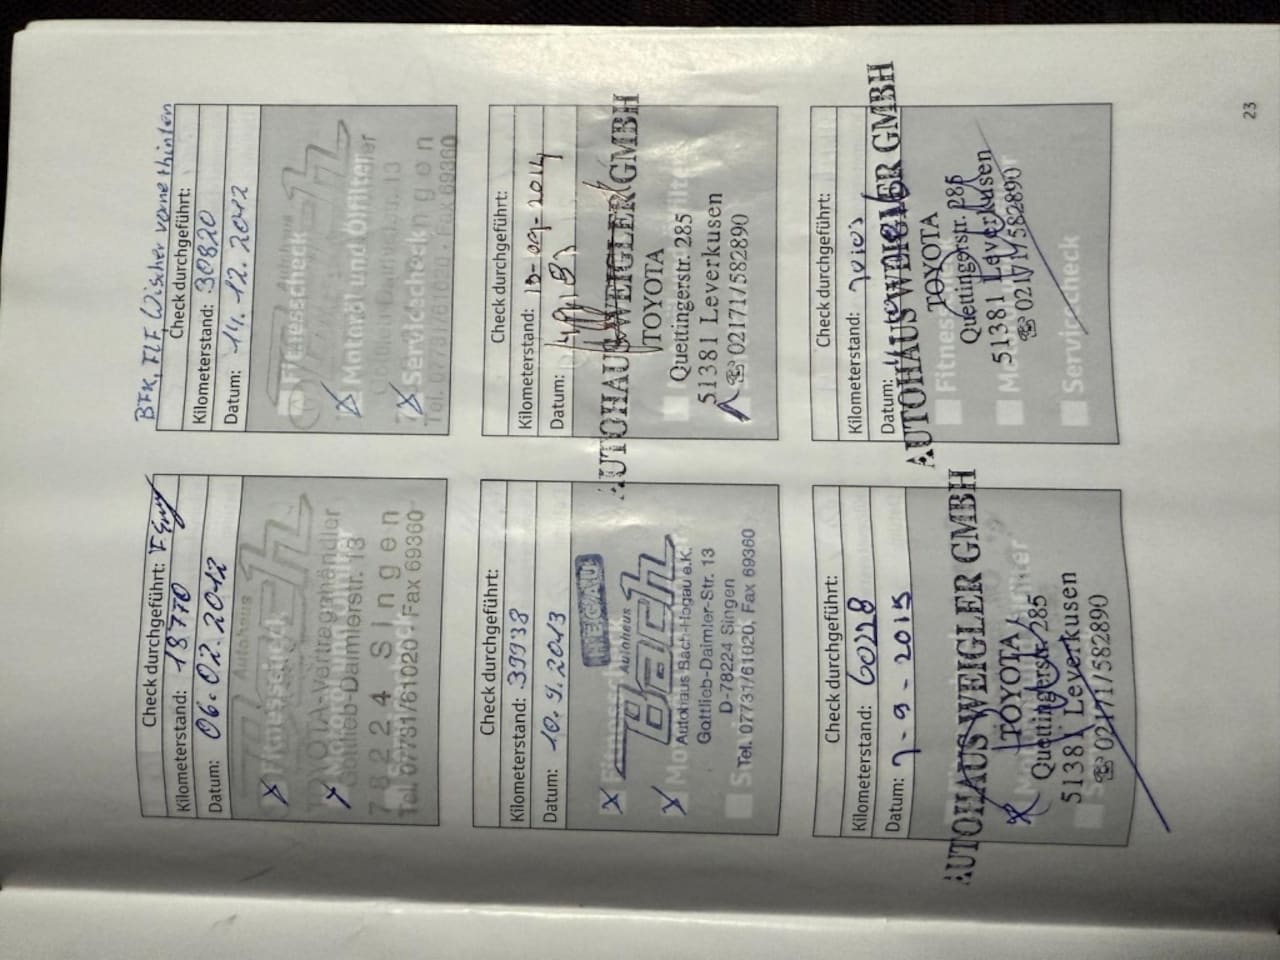 Check durchgeführt:
Kilometerstand: 18770
Datum: 06.02.2012
Fitnesscheck
Autohaus
TOYOTA-Vertragshändler
Gottlieb-Daimlerstr. 13
78224 Singen
Tel. 07731/61020 · Fax 69360
BFK, FLF, Wischer vorne + hinten
Check durchgeführt:
Kilometerstand: 30820
Datum: 14.12.2012
Fitnesscheck
Motoröl und Ölfilter
Servicecheck
Singen
Tel. 07731/61020 · Fax 69360
Check durchgeführt:
Kilometerstand: 39938
Datum: 10.9.2013
HEGAU
Autohaus
Bach
Autohaus Bach-Hegau e.K.
Gottlieb-Daimler-Str. 13
D-78224 Singen
Tel. 07731/61020, Fax 69360
Check durchgeführt:
Kilometerstand: 13-09-2014
Datum:
AUTOHAUS WEIGLER GMBH
TOYOTA
Quettingerstr. 285
51381 Leverkusen
☏ 02171/582890
Check durchgeführt:
Kilometerstand: 60228
Datum: 7-9-2015
AUTOHAUS WEIGLER GMBH
TOYOTA
Quettingerstr. 285
51381 Leverkusen
☏ 02171/582890
Check durchgeführt:
Kilometerstand:
Datum:
AUTOHAUS WEIGLER GMBH
TOYOTA
Fitness
Quettingerstr. 285
51381 Leverkusen
☏ 02171/582890
Servicecheck
23